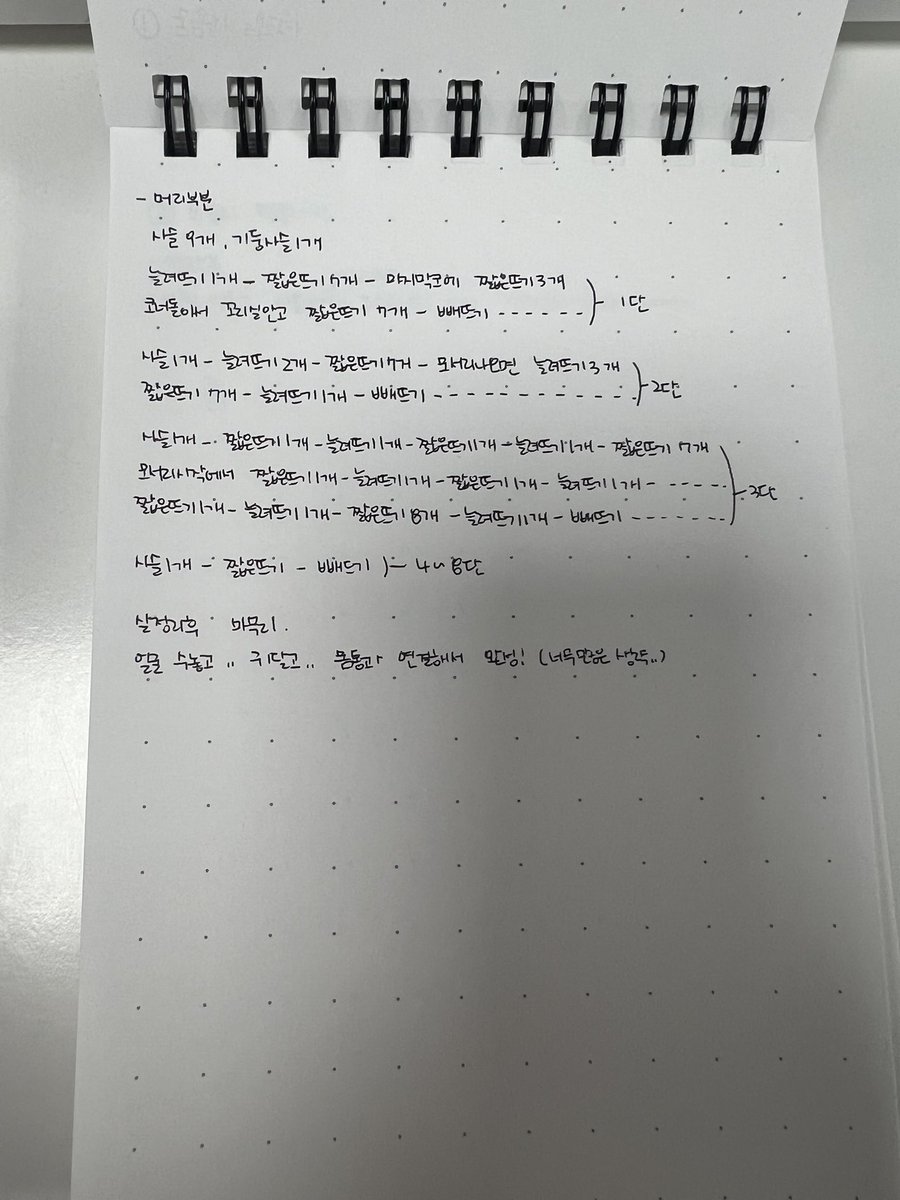 - 머리부분
사슬 9개, 기둥사슬 1개
늘려뜨기 1개 - 짧은뜨기 7개 - 마지막코에 짧은뜨기 3개
코너돌아서 꼬리실안고 짧은뜨기 7개 - 빼뜨기 ------ } 1단
사슬 1개 - 늘려뜨기 2개 - 짧은뜨기 7개 - 모서리나오면 늘려뜨기 3개
짧은뜨기 7개 - 늘려뜨기 1개 - 빼뜨기 ----------- } 2단
사슬 1개 - 짧은뜨기 1개 - 늘려뜨기 1개 - 짧은뜨기 1개 - 늘려뜨기 1개 - 짧은뜨기 7개
모서리시작에서 짧은뜨기 1개 - 늘려뜨기 1개 - 짧은뜨기 1개 - 늘려뜨기 1개 - ----- } 3단
짧은뜨기 1개 - 늘려뜨기 1개 - 짧은뜨기 8개 - 늘려뜨기 1개 - 빼뜨기 -------
사슬 1개 - 짧은뜨기 - 빼뜨기 ) - 4~8단
실정리후 마무리.
얼굴 수놓고.. 귀달고.. 몸통과 연결해서 완성! (너무많은 생략..)